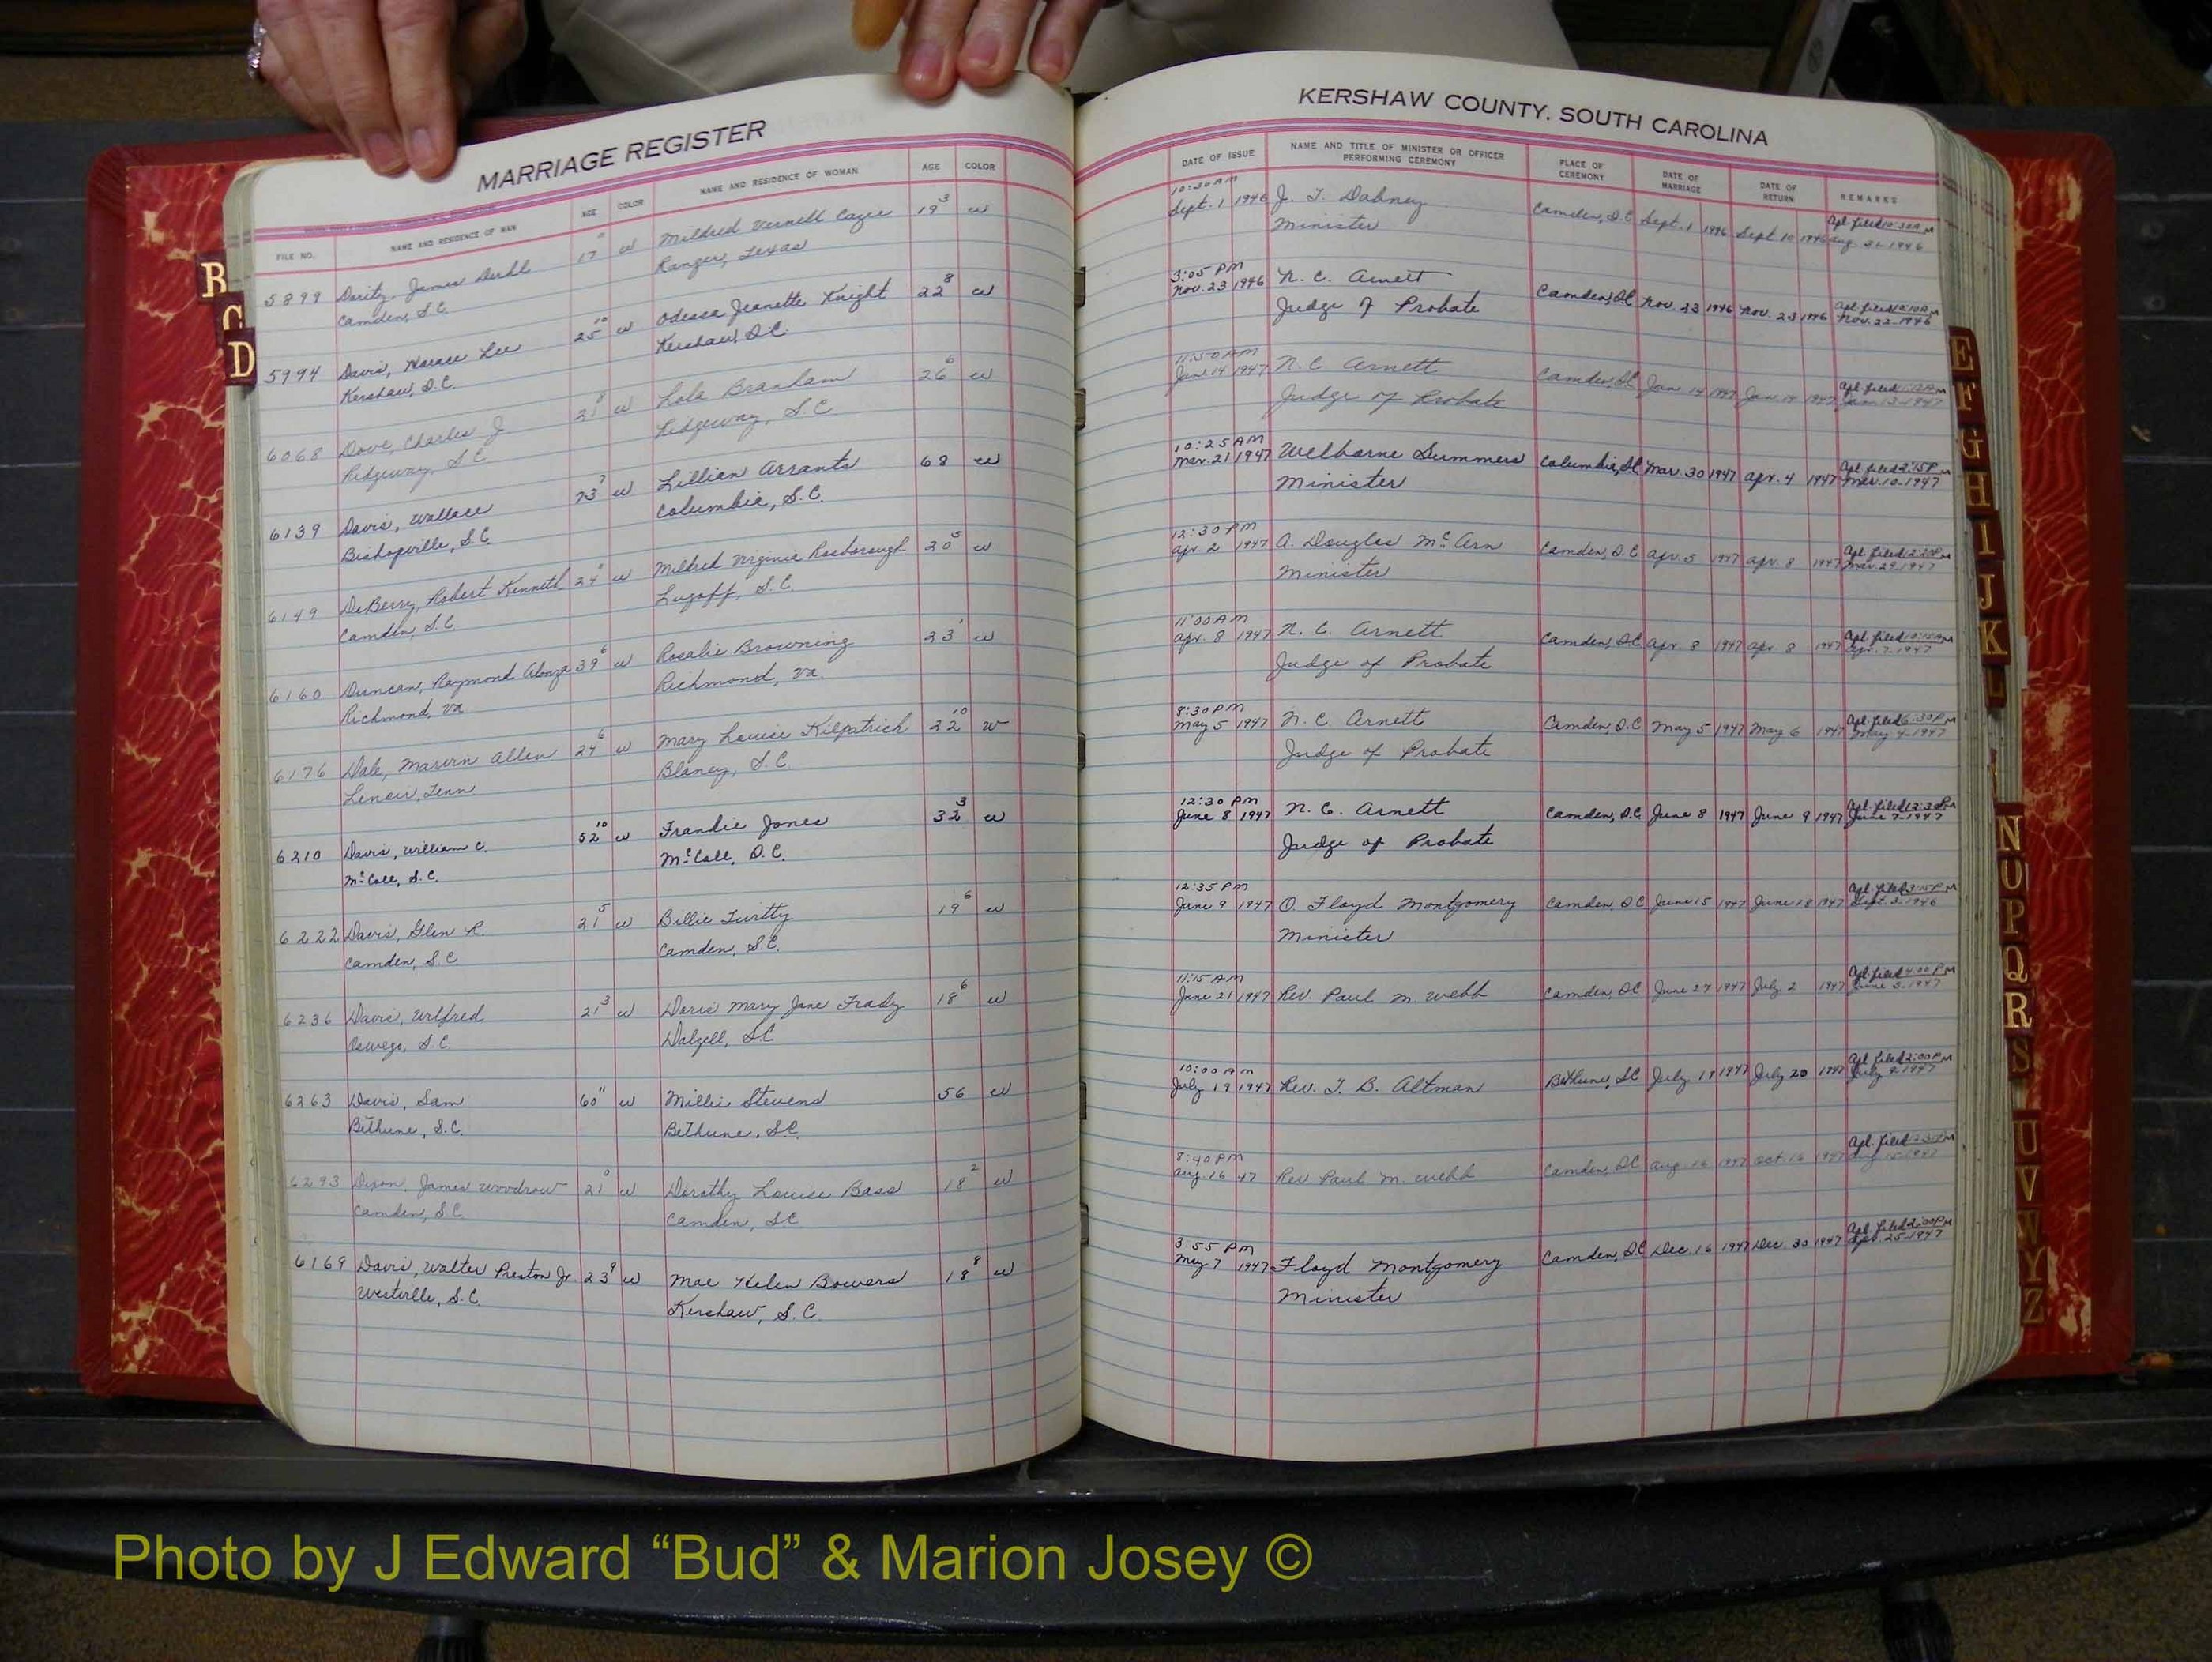 MARRIAGE REGISTER
FILE NO. NAME AND RESIDENCE OF MAN AGE COLOR NAME AND RESIDENCE OF WOMAN AGE COLOR
5899 Dority, James 17 w Mildred Vernell 19 3 w
Camden, S.C. Ranger, Texas
5994 Davis, Horace Lee 25 10 w Odessa Jeanette Knight 22 8 w
Kershaw, S.C. Kershaw, S.C.
6068 Dove, Charles J 21 w Lola Branham 26 6 w
Ridgeway, S.C. Ridgeway, S.C
6139 Davis, Wallace 73 7 w Lillian Arrants 68 w
Bishopville, S.C. Columbia, S.C.
6149 DeBerry, Robert Kenneth 24 w Mildred Virginia Rosborough 20 5 w
Camden, S.C. Lugoff, S.C.
6160 Duncan, Raymond Alonza 39 6 w Rosalie Browning 23 1 w
Richmond, Va Richmond, Va.
6176 Dale, Marvin Allen 24 6 w Mary Louise Kilpatrick 22 10 w
Lenoir, Tenn Blaney, S.C.
6210 Davis, William C. 52 10 w Frandie Jones 32 3 w
McColl, S.C. McColl, S.C.
6222 Davis, Glen R. 21 5 w Billie Twitty 19 6 w
Camden, S.C. Camden, S.C.
6236 Davis, Wilfred 21 3 w Doris Mary Jane Frady 18 6 w
Oswego, S.C. Dalzell, S.C
6263 Davis, Sam 60 11 w Millie Stevens 56 w
Bethune, S.C. Bethune, S.C.
6293 Dixon, James Woodrow 21 0 w Dorothy Louise Bass 18 2 w
Camden, S.C. Camden, S.C
6169 Davis, Walter Preston Jr. 23 9 w Mae Helen Bowers 18 8 w
Westville, S.C. Kershaw, S.C.
KERSHAW COUNTY, SOUTH CAROLINA
DATE OF ISSUE NAME AND TITLE OF MINISTER OR OFFICER PERFORMING CEREMONY PLACE OF CEREMONY DATE OF MARRIAGE DATE OF RETURN REMARKS
10:30 AM Apl. filed 10:30 AM
Sept. 1 1946 J. T. Dabney Camden, S.C Sept. 1 1946 Sept. 10 1946 Aug. 31-1946
Minister
3:05 PM Apl. filed
Nov. 23 1946 N. C. Arnett Camden, SC Nov. 23 1946 Nov. 23 1946 Nov. 22-1946
Judge of Probate
11:50 AM Apl. filed
Jan 14 1947 N. C. Arnett Camden, SC Jan 14 1947 Jan 14 1947 Jan 13-1947
Judge of Probate
10:25 AM Apl. filed 2:15 P M
Mar. 21 1947 Welborne Summers Columbia, SC Mar. 30 1947 Apr. 4 1947 Mar. 10-1947
Minister
12:30 PM Apl. filed
Apr. 2 1947 A. Douglas McArn Camden, S.C Apr. 5 1947 Apr. 8 1947 Mar. 29-1947
Minister
11:00 AM Apl. filed 10:15 AM
Apr. 8 1947 N. C. Arnett Camden, S.C Apr. 8 1947 Apr. 8 1947 Apr. 7-1947
Judge of Probate
8:30 PM Apl. filed 6:30 PM
May 5 1947 N. C. Arnett Camden, S.C May 5 1947 May 6 1947 May 4-1947
Judge of Probate
12:30 PM Apl. filed 12:30 PM
June 8 1947 N. C. Arnett Camden, S.C June 8 1947 June 9 1947 June 7-1947
Judge of Probate
12:35 PM Apl. filed 3:15 PM
June 9 1947 O. Floyd Montgomery Camden, SC June 15 1947 June 18 1947 Sept. 3-1946
Minister
11:15 AM Apl. filed 4:00 PM
June 21 1947 Rev. Paul M. Webb Camden, SC June 27 1947 July 2 1947 June 3-1947
10:00 AM Apl. filed 2:00 PM
July 19 1947 Rev. T. B. Altman Bethune, SC July 19 1947 July 20 1947 July 9-1947
8:40 PM Apl. filed
Aug. 16 47 Rev Paul M. Webb Camden, SC Aug. 16 1947 Oct. 16 1947
3:55 PM Apl. filed 2:00 PM
May 7 1947 Floyd Montgomery Camden, SC Dec. 16 1947 Dec. 30 1947 Apr. 25-1947
Minister
B
C
D
E
F
G
H
I
J
K
L
N
O
P
Q
R
S
U
V
W
Y
Z
Photo by J Edward “Bud” & Marion Josey ©